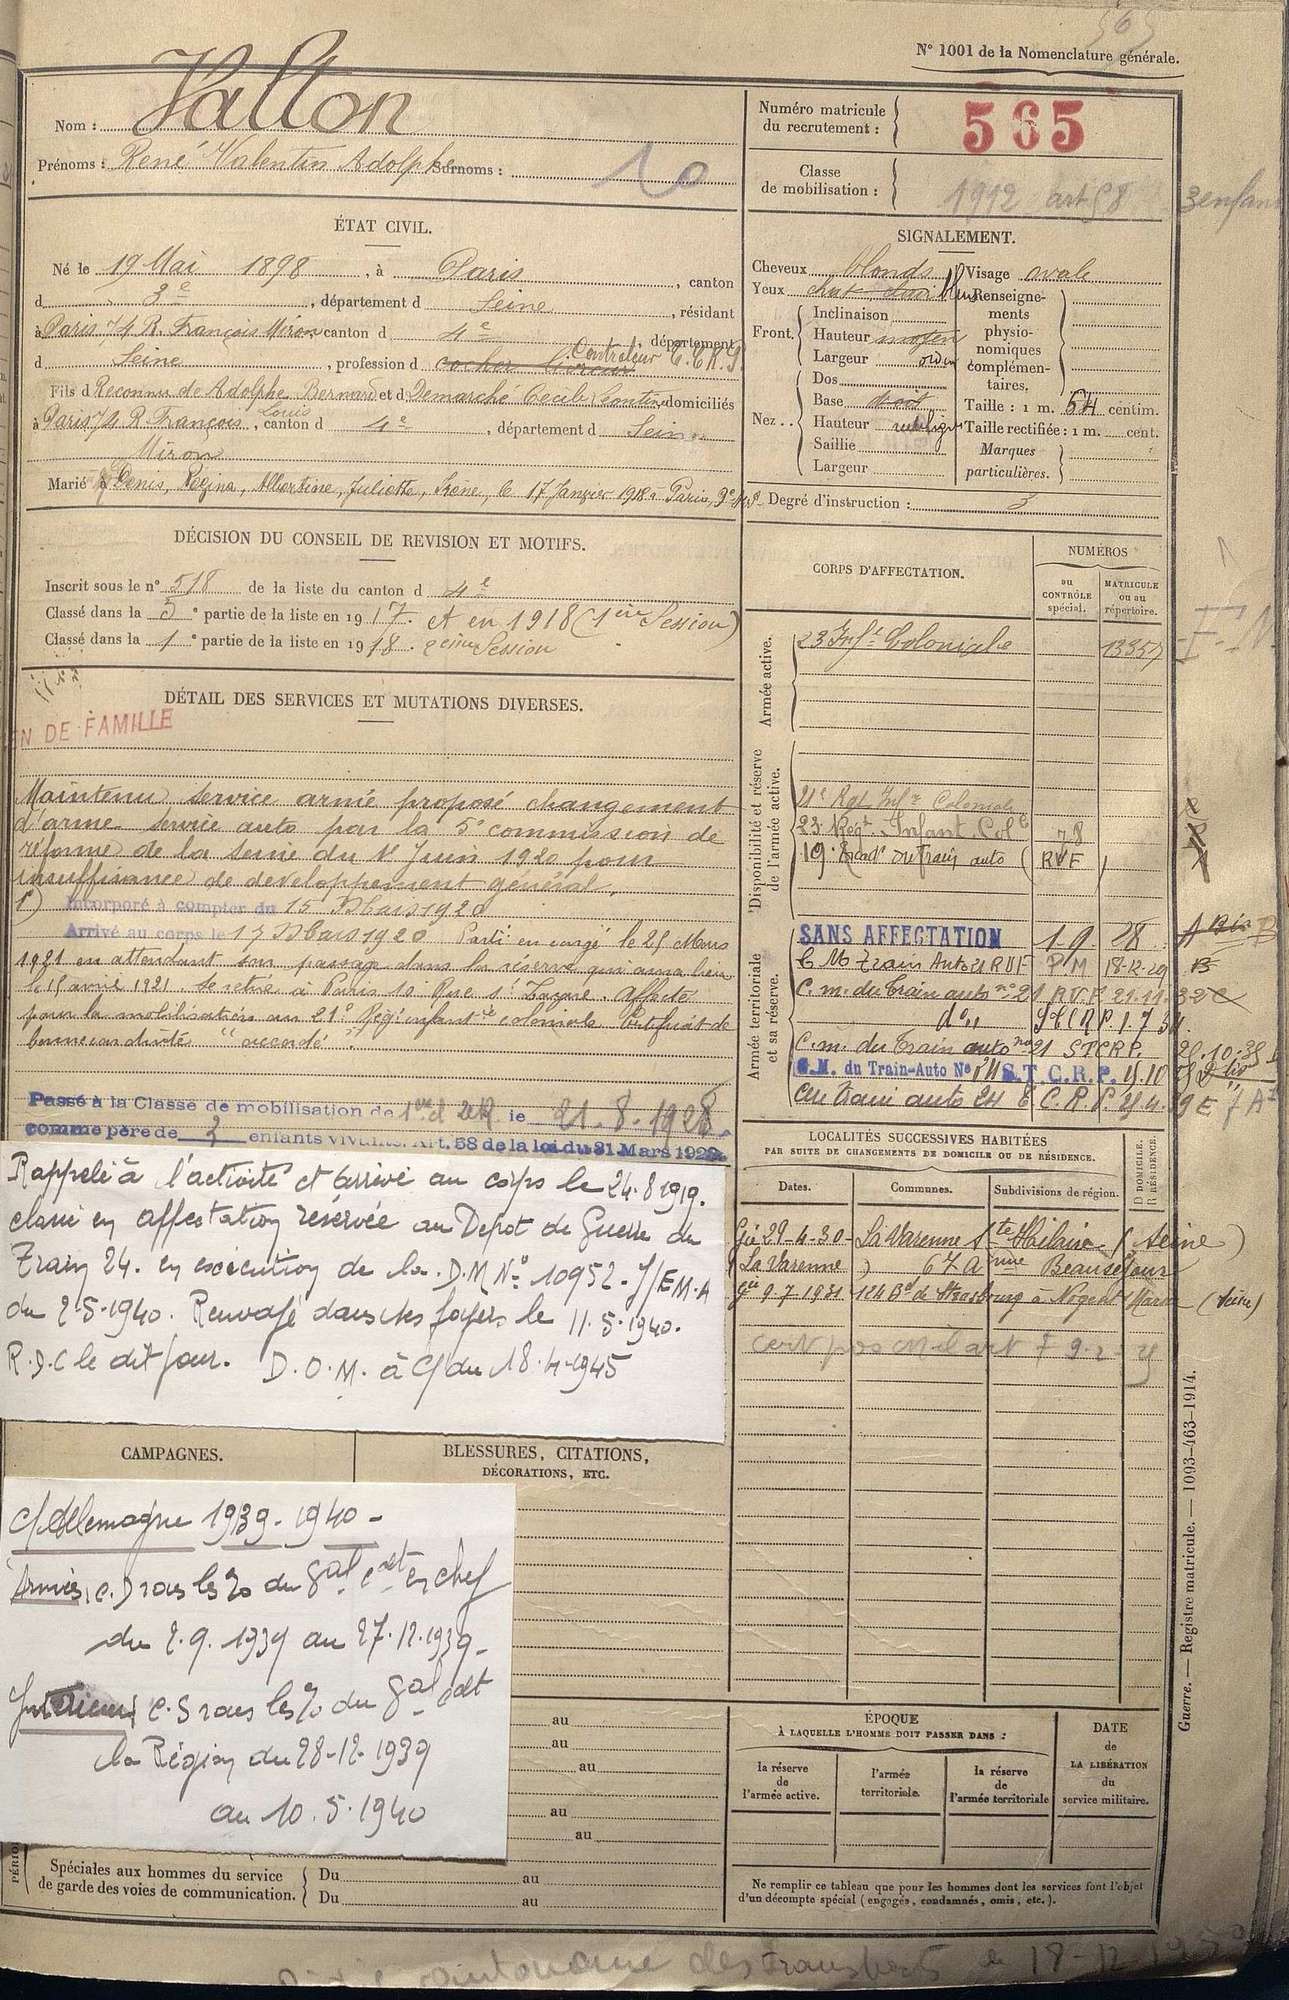 N° 1001 de la Nomenclature générale.
Nom : Vallon
Prénoms : René Valentin Adolphe Surnoms :
10
Numéro matricule
du recrutement :
565
Classe
de mobilisation :
1912 art 58 3 enfan
ÉTAT CIVIL.
Né le 19 Mai 1898, à Paris, canton
d 3e, département d Seine, résidant
à Paris 74 R. François Miron canton d 4e, département
d Seine, profession d cocher livreur Controleur T.C.R.P
Fils d Reconnu de Adolphe Bernard et d Demarché Cécile Léontine domiciliés
Louis
à Paris 74 R François, canton d 4e, département d Seine
Miron
Marié à Denis, Régina, Albertine, Juliette, Irène, le 17 Janvier 1918 à Paris
SIGNALEMENT.
Cheveux blonds
Yeux
Front.
Inclinaison
Hauteur moyen
Largeur
Nez..
Dos
Base droit
Hauteur
Saillie
Largeur
Visage ovale
Renseigne-
ments
physio-
nomiques
complémen-
taires.
Taille : 1 m. 54 centim.
Taille rectifiée : 1 m. cent.
Marques
particulières.
Degré d'instruction : 3
DÉCISION DU CONSEIL DE REVISION ET MOTIFS.
Inscrit sous le n° 518 de la liste du canton d 4e
Classé dans la 5e partie de la liste en 1917. et en 1918 (1ère Session)
Classé dans la 1e partie de la liste en 1918. 2eme Session
DÉTAIL DES SERVICES ET MUTATIONS DIVERSES.
N DE FAMILLE
Maintenu service armé proposé changement
d'arme service auto par la 5e commission de
réforme de la Seine du 1er Juin 1920 pour
insuffisance de développement général.
Incorporé à compter du 15 Mars 1920
Arrivé au corps le 17 Mars 1920 Parti en congé le 25 Mars
1921 en attendant son passage dans la réserve qui aura lieu
le 15 avril 1921. Se retire à Paris 10 Rue St Lazare. Affecté
pour la mobilisation au 21e Régt infantie coloniale Certificat de
bonne conduite "accordé"
Passé à la Classe de mobilisation de le 21-8-1928
comme père de 3 enfants vivants. Art. 58 de la loi du 31 Mars 1928
Rappelé à l'activité et arrivé au corps le 24.8.1919.
classé en affectation réservée au Dépôt de Guerre du
Train 24. en exécution de la D.M N° 10952-I/EM.A
du 2-5-1940. Renvoyé dans ses foyers le 11.5.1940.
R.D.C le dit jour. D.O.M. à C/ du 18-4-1945
CORPS D'AFFECTATION.
NUMÉROS
au
CONTRÔLE
spécial.
MATRICULE
ou au
répertoire.
Armée active.
23 Infie Coloniale 13357
Disponibilité et réserve
de l'armée active.
21e Rgt Infie Coloniale
23 Régt Infant Colle 78
19e Escadn du train auto (RVF)
Armée territoriale
et sa réserve.
SANS AFFECTATION 1.9.28
C M train Auto 21 RVF PM 18-12-29
C.m. du Train auto n° 21 RVF 21.11.32
do STCRP 1.7.34
C.m. du Train auto n° 21 STCRP. 25.10.35
C.M. du Train-Auto N° S.T.C.R.P.
CM train auto 24 T.C.R.P.
LOCALITÉS SUCCESSIVES HABITÉES
PAR SUITE DE CHANGEMENTS DE DOMICILE OU DE RÉSIDENCE.
Dates.
Communes.
Subdivisions de région.
D DOMICILE.
R RÉSIDENCE.
Gie 29-4-30- La Varenne Ste Hilaire (Seine)
(La Varenne) 67 Avnue Beauséjour
gie 9.7.1931 124 Bd de Strasbourg à Nogent s/Marne (Seine)
CAMPAGNES.
BLESSURES, CITATIONS,
DÉCORATIONS, ETC.
C/ Allemagne 1939-1940-
Armées, C.D sous les %o du Gal Cdt en chef
du 2.9.1939 au 27.12.1939-
Intérieur, C.S sous les %o du Gal Cdt
la Région du 28-12-1939
au 10.5.1940
au
au
au
au
au
Spéciales aux hommes du service
de garde des voies de communication.
Du au
Du au
ÉPOQUE
À LAQUELLE L'HOMME DOIT PASSER DANS :
la réserve
de
l'armée active.
l'armée
territoriale.
la réserve
de
l'armée territoriale
DATE
de
LA LIBÉRATION
du
service militaire.
Ne remplir ce tableau que pour les hommes dont les services font l'objet
d'un décompte spécial (engagés, condamnés, omis, etc.).
Guerre. — Registre matricule. — 1093-463-1914.
autonome des transports le 18-12-19